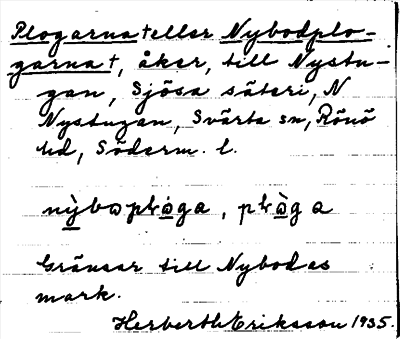 Plogarna † eller Nybodplo-
garna †, åker, till Nystu-
gan, Sjösa säteri, N
Nystugan, Svärta sn, Rönö
hd, Söderm. l.
nỳbωpƚὼga, pƚὼga
Gränsar till Nybodas
mark.
Herberth Eriksson 1935.